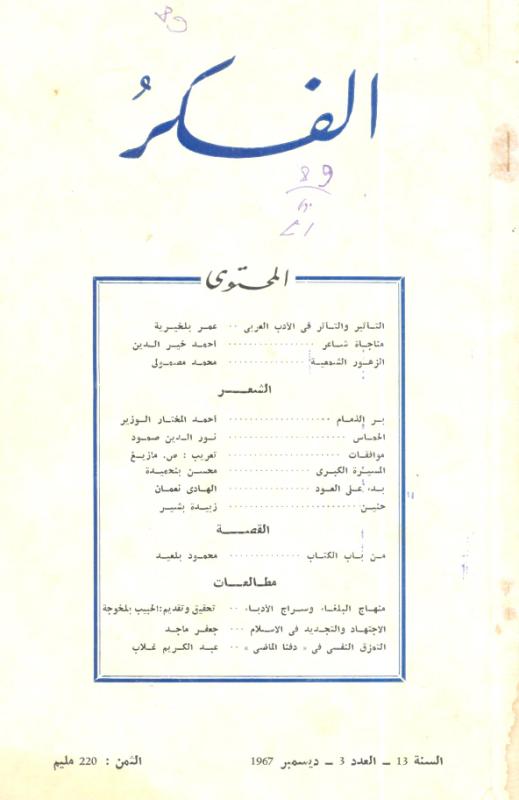 89
الفكر
89
المحتوى
التأثير والتأثر في الأدب العربي ·· عمر بلخيرية
مناجاة شاعر ················ احمد خير الدين
الزهور الشمعية ·············· محمد مصمولي
الشعــــر
بـر الذمام ················ احمد المختار الوزير
الحماس ················ نور الدين صمود
موافقات ················ تعريب : ص. مازيغ
المسيرة الكبرى ············ محسن بنحميدة
بدء على العود ············ الهادى نعمان
حنين ················ زبيدة بشير
القصـــة
من باب الكتاب ············ محمود بلعيد
مطالعــات
منهاج البلغاء وسراج الأدباء ·· تحقيق وتقديم:الحبيب بلخوجة
الاجتهاد والتجديد فى الاسلام ··· جعفر ماجد
التمزق النفسى فى « دفنا الماضى » ·· عبد الكريم غلاب
السنة 13 ـ العدد 3 ـ ديسمبر 1967
الثمن : 220 مليم